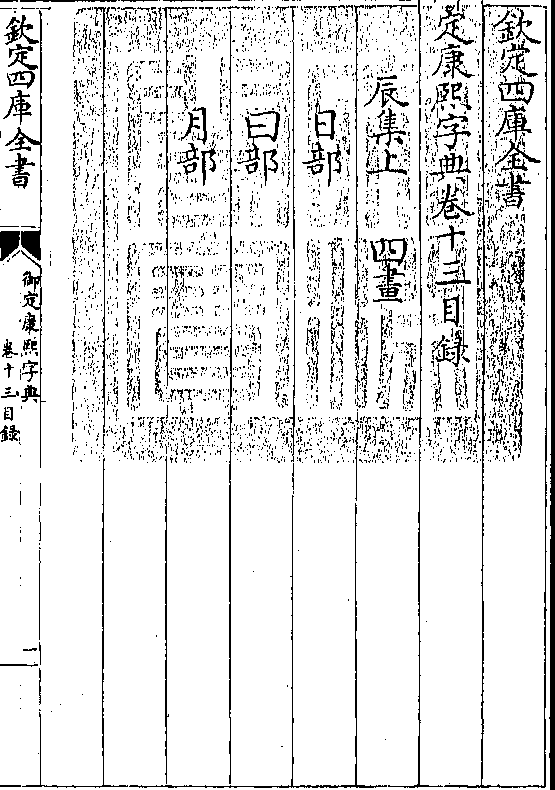 欽定四庫全書
定康熙字典卷十三目録
辰集上　四畫
日部
曰部
月部
欽定四庫全書
御定康熙字典
卷十三目録
一